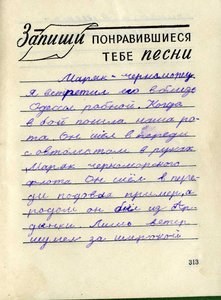 Запиши ПОНРАВИВШИЕСЯ
ТЕБЕ песни
Моряк - черноморец
Я встретил его вблизи
Одессы родной. Когда
в бой пошла наша ро-
та. Он шёл в впереди
с автоматом в руках
Моряк черноморского
флота Он шёл в пере-
ди подовая пример, а
родом он был из Ор-
дынки Лишь ветер
за широкой
313